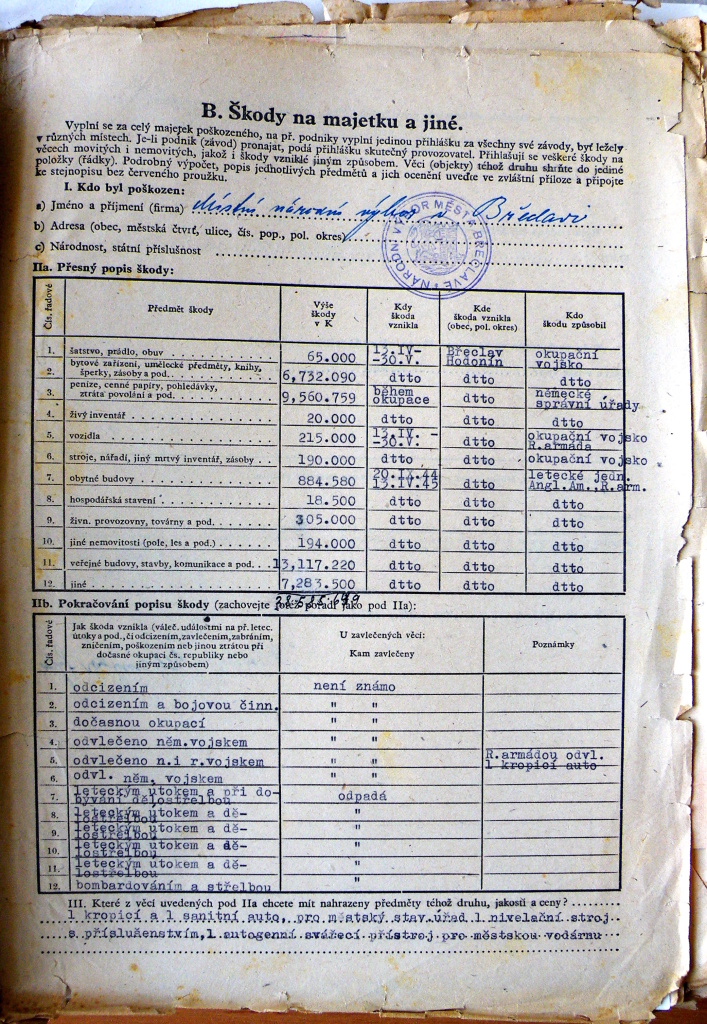 B. Škody na majetku a jiné.
Vyplní se za celý majetek poškozeného, na př. podniky vyplní jedinou přihlášku za všechny své závody, byť ležely
v různých místech. Je-li podnik (závod) pronajat, podá přihlášku skutečný provozovatel. Přihlašují se veškeré škody na
věcech movitých i nemovitých, jakož i škody vzniklé jiným způsobem. Věci (objekty) téhož druhu shrňte do jediné
položky (řádky). Podrobný výpočet, popis jednotlivých předmětů a jich ocenění uveďte ve zvláštní příloze a připojte
ke stejnopisu bez červeného proužku.
I. Kdo byl poškozen:
a) Jméno a příjmení (firma) Místní národní výbor v Břeclavi
b) Adresa (obec, městská čtvrť, ulice, čís. pop., pol. okres)
c) Národnost, státní příslušnost
NÁRODNÍ VÝBOR MĚSTA BŘECLAVĚ
IIa. Přesný popis škody:
Čís. řadové Předmět škody Výše škody v K Kdy škoda vznikla Kde škoda vznikla (obec, pol. okres) Kdo škodu způsobil
1. šatstvo, prádlo, obuv 65.000 13.IV-30.V. Břeclav Hodonín okupační vojsko
2. bytové zařízení, umělecké předměty, knihy, šperky, zásoby a pod. 6,732.090 dtto dtto dtto
3. peníze, cenné papíry, pohledávky, ztráta povolání a pod. 9,560.759 během okupace dtto německé správní úřady
4. živý inventář 20.000 dtto dtto dtto
5. vozidla 215.000 13.IV.-30.V. dtto okupační vojsko R.armáda
6. stroje, nářadí, jiný mrtvý inventář, zásoby 190.000 dtto dtto okupační vojsko
7. obytné budovy 884.580 20.IX.44 13.IV.45 dtto letecké jedn. Angl.Am.,R.arm.
8. hospodářská stavení 18.500 dtto dtto dtto
9. živn. provozovny, továrny a pod. 305.000 dtto dtto dtto
10. jiné nemovitosti (pole, les a pod.) 194.000 dtto dtto dtto
11. veřejné budovy, stavby, komunikace a pod. 13,117.220 dtto dtto dtto
12. jiné 7,283.500 dtto dtto dtto
IIb. Pokračování popisu škody (zachovejte totéž pořadí jako pod IIa):
Čís. řadové Jak škoda vznikla (váleč. událostmi na př. letec. útoky a pod., či odcizením, zavlečením, zabráním, zničením, poškozením neb jinou ztrátou při dočasné okupaci čs. republiky nebo jiným způsobem) U zavlečených věcí: Kam zavlečeny Poznámky
1. odcizením není známo
2. odcizením a bojovou činn. " "
3. dočasnou okupací " "
4. odvlečeno něm.vojskem " "
5. odvlečeno n.i r.vojskem " " R.armádou odvl. 1 kropicí auto
6. odvl. něm. vojskem " "
7. leteckým utokem a při dobývání dělostřelbou odpadá
8. leteckým utokem a dělostřelbou "
9. leteckým utokem a dělostřelbou "
10. leteckým utokem a dělostřelbou "
11. leteckým utokem a dělostřelbou "
12. bombardováním a střelbou "
III. Které z věcí uvedených pod IIa chcete mít nahrazeny předměty téhož druhu, jakosti a ceny?
1 kropicí a 1 sanitní auto, pro městský stav.úřad 1 nivelační stroj
s příslušenstvím,1 autogenní svářecí přístroj pro městskou vodárnu